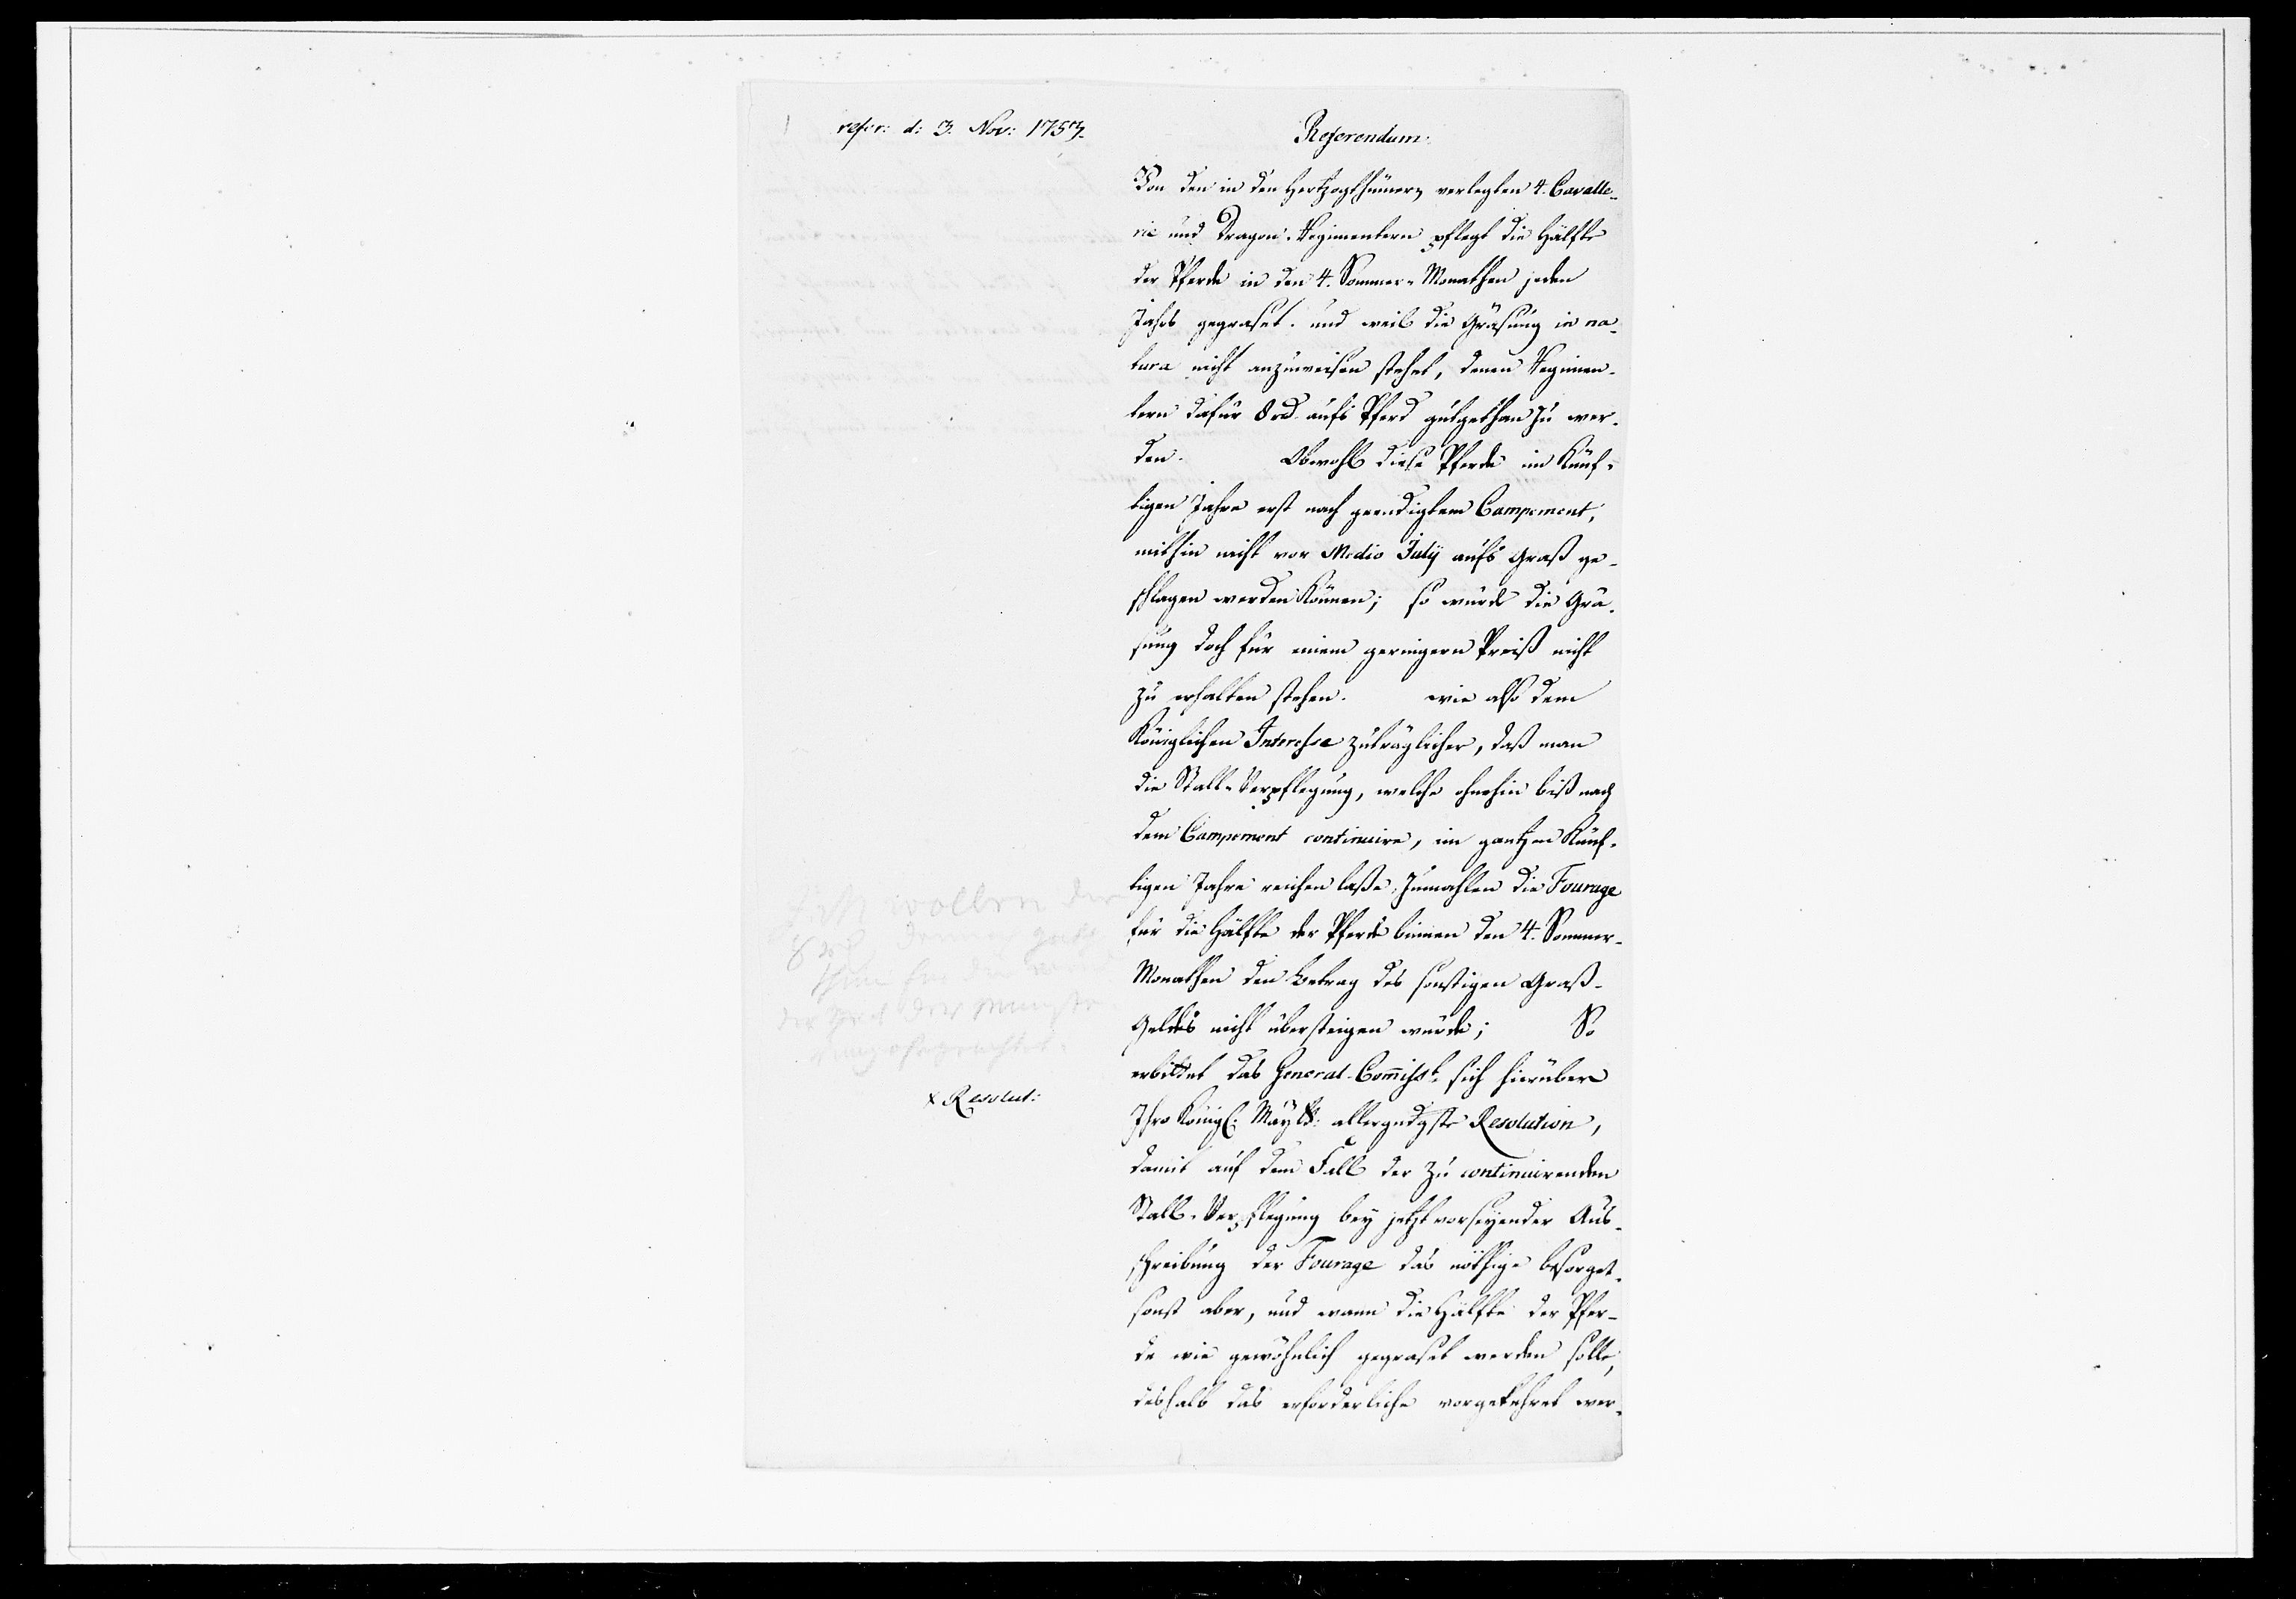 refer: d: 3. Nov: 1753.
Referendum.
Von den in den Hertzogthümern verlegten 4. Cavalle-
rie und Dragon: Regimentern pflegt die Hälfte
der Pferde in den 4. Sommer-Monathen jeden
Jahrs gegraset. und weil die Gräsung in na-
tura nicht anzuweisen stehet, denen Regimen-
tern dafür 8 rd. aufs Pferd gutgethan zu wer-
den. Obwohl diese Pferde im künf-
tigen Jahre erst nach geendigtem Campement,
mithin nicht vor Medio Julij aufs Graß ge-
schlagen werden können; so würde die Grä-
sung doch für einem geringern Preiß nicht
zu erhalten stehen. wie also dem
Königlichen Interesse zuträglicher, daß man
die Stall-Verpflegung, welche ohnehin biß nach
dem Campement continuire, im gantzen künf-
tigen Jahre reichen laße, zumahlen die Fourage
für die Hälfte der Pferde binnen den 4. Sommer-
Monathen den Betrag des sonstigen Graß-
Geldes nicht übersteigen würde; So
erbittet das General-Commisst. sich hierüber
Ihro Königl. Mayts: allergndgste Resolution,
damit auf den Fall der zu continuirenden
Stall-Verpflegung bey jetzt vorseyender Aus-
schreibung der Fourage das nöthige besorget,
sonst aber, und wann die Hälfte der Pfer-
de wie gewöhnlich gegraset werden solle,
deshalb das erforderliche vorgekehret wer-
wollen
x Resolut: